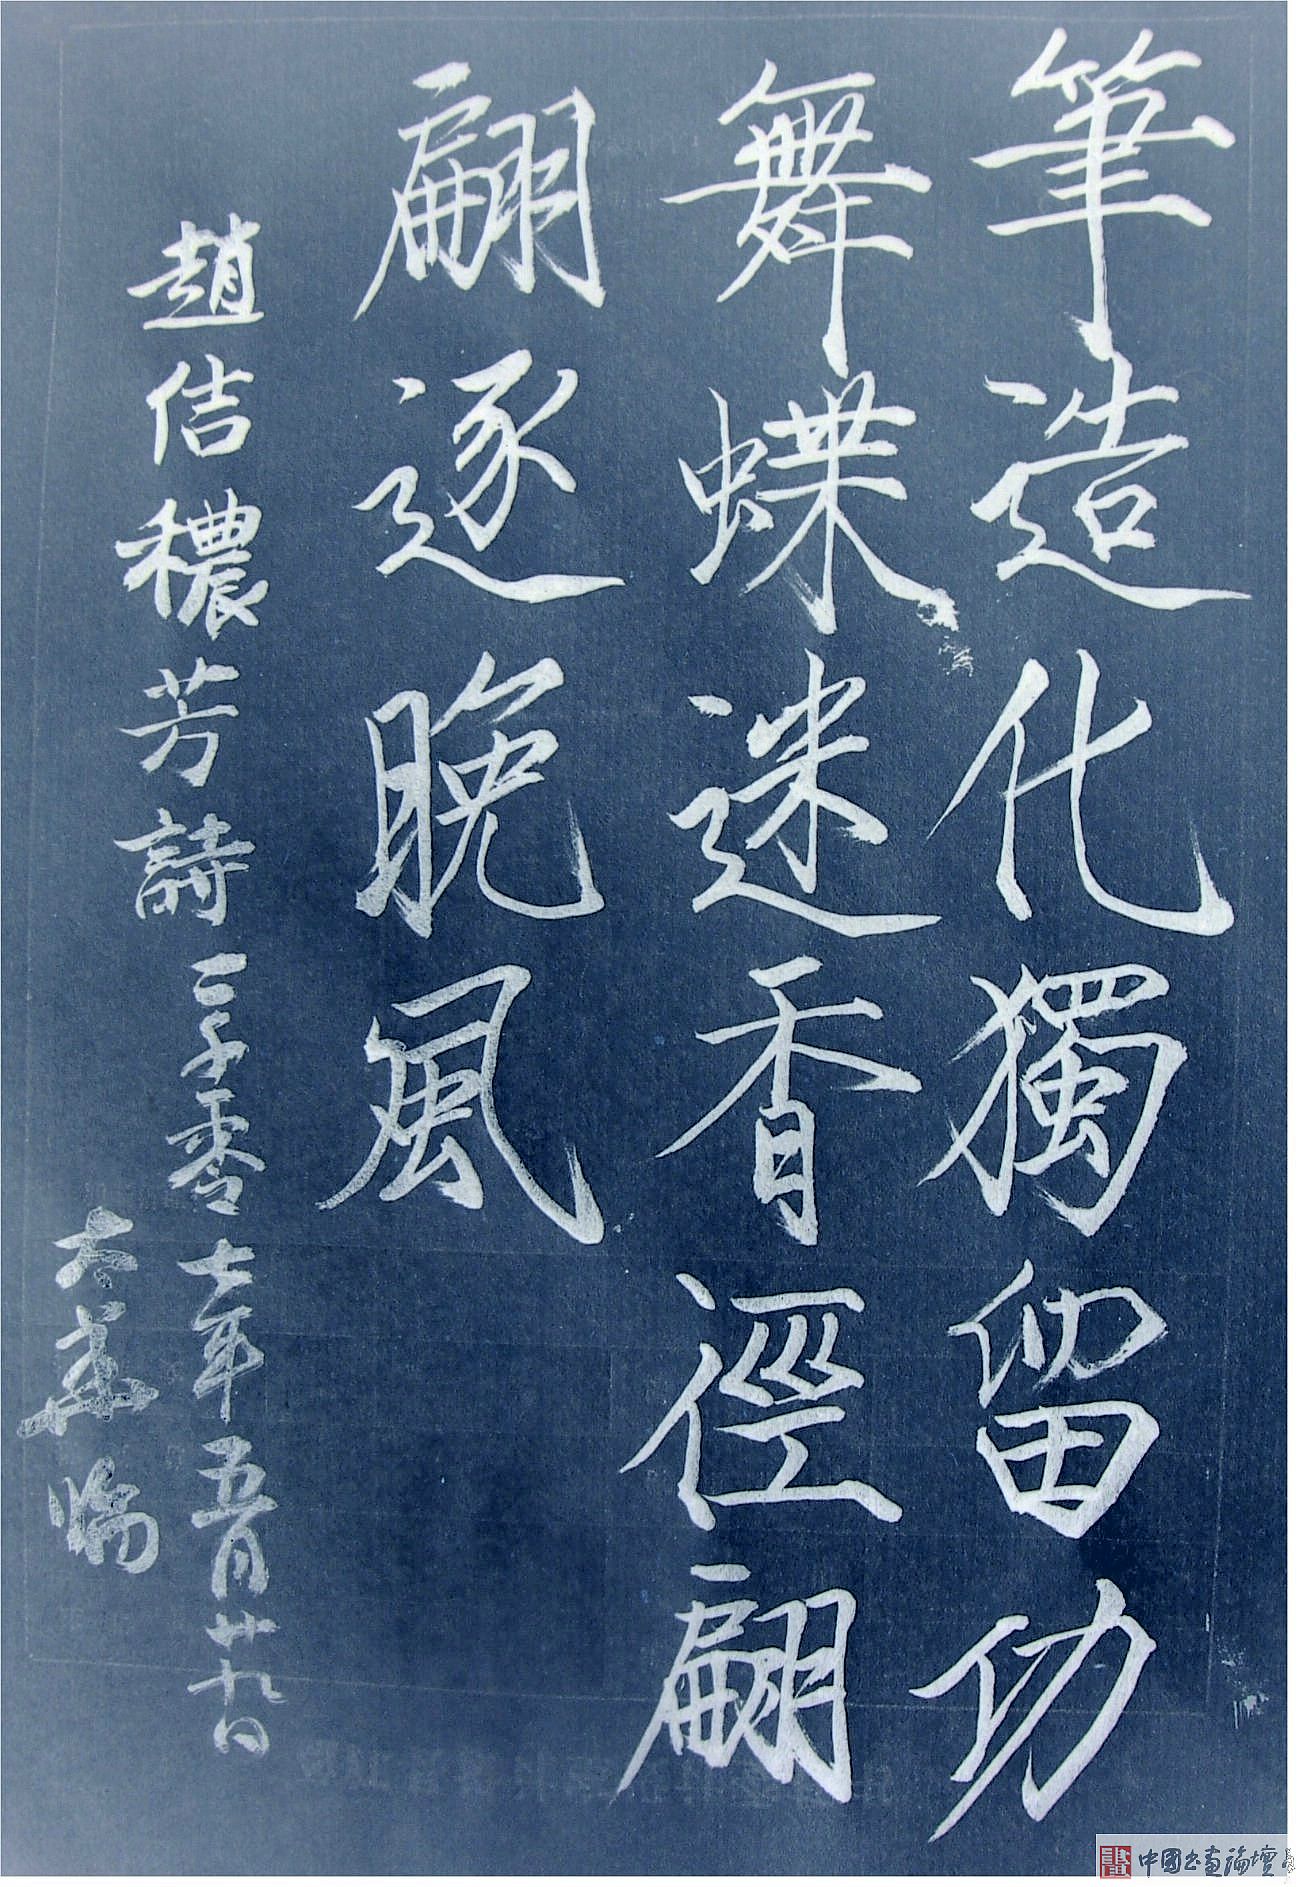 筆造化獨留功
舞蝶迷香徑翩
翩逐晚風
趙佶穠芳詩二千零七年五月廿九日
太華臨
中國书畫論壇